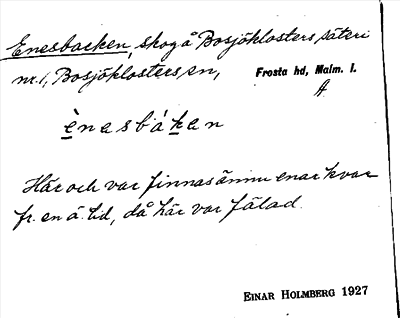 Enesbacken, skog å Bosjöklosters säteri
nr. 1, Bosjöklosters sn, Frosta hd, Malm. l.
A
ènasbákan
Här och var finnas ännu enar kvar
fr. en ä. tid, då här var fälad.
EINAR HOLMBERG 1927